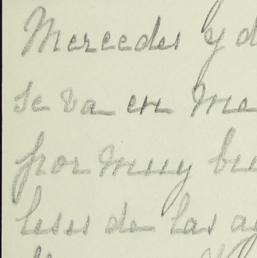 Mercedes y d
se va en Me
por muy bu
de las a